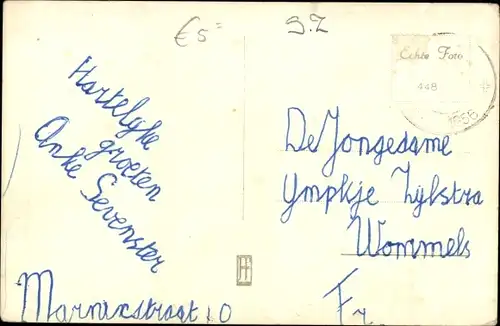 € 5=
S.Z
Echte Foto
448
1958
Hartelijke
groeten
Anke Sevenster
De Jongedame
Ympkje Zijlstra
Wommels
Marnixstraat 10
Fr.